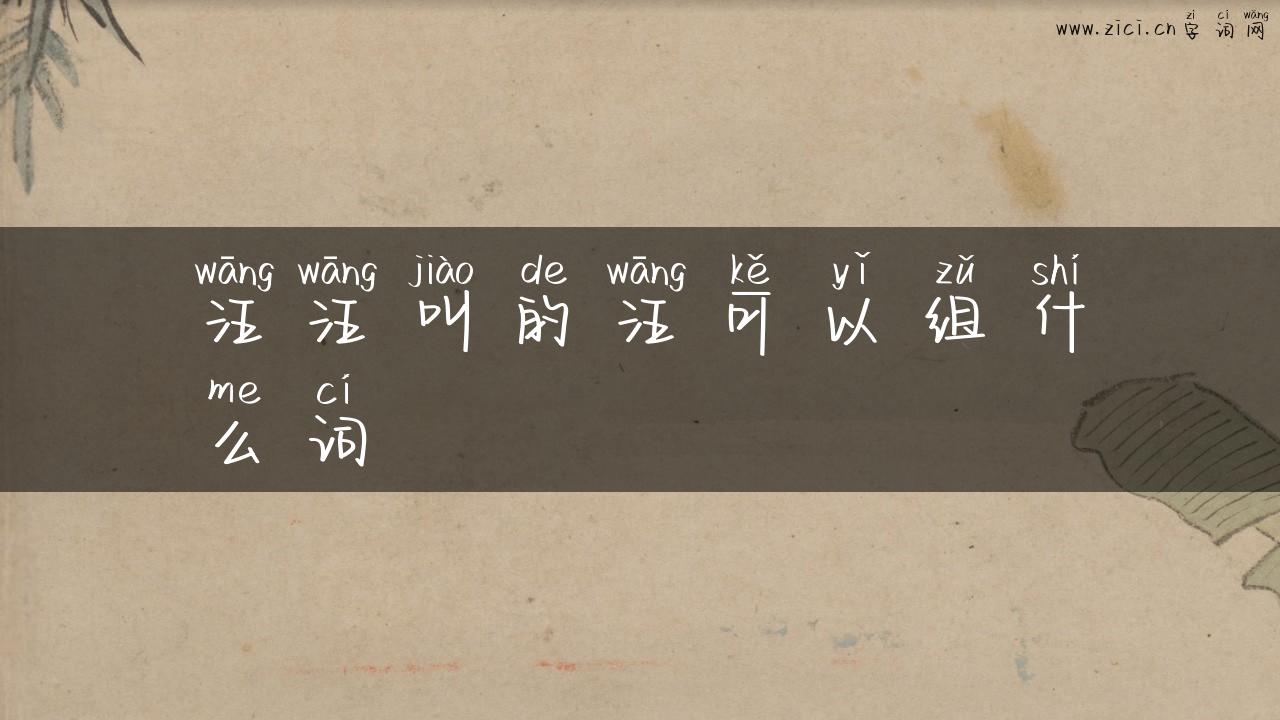 zì cí wǎng
www.zici.cn 字 词 网
wāng wāng jiào de wāng kě yǐ zǔ shí
汪 汪 叫 的 汪 可 以 组 什
me cí
么 词